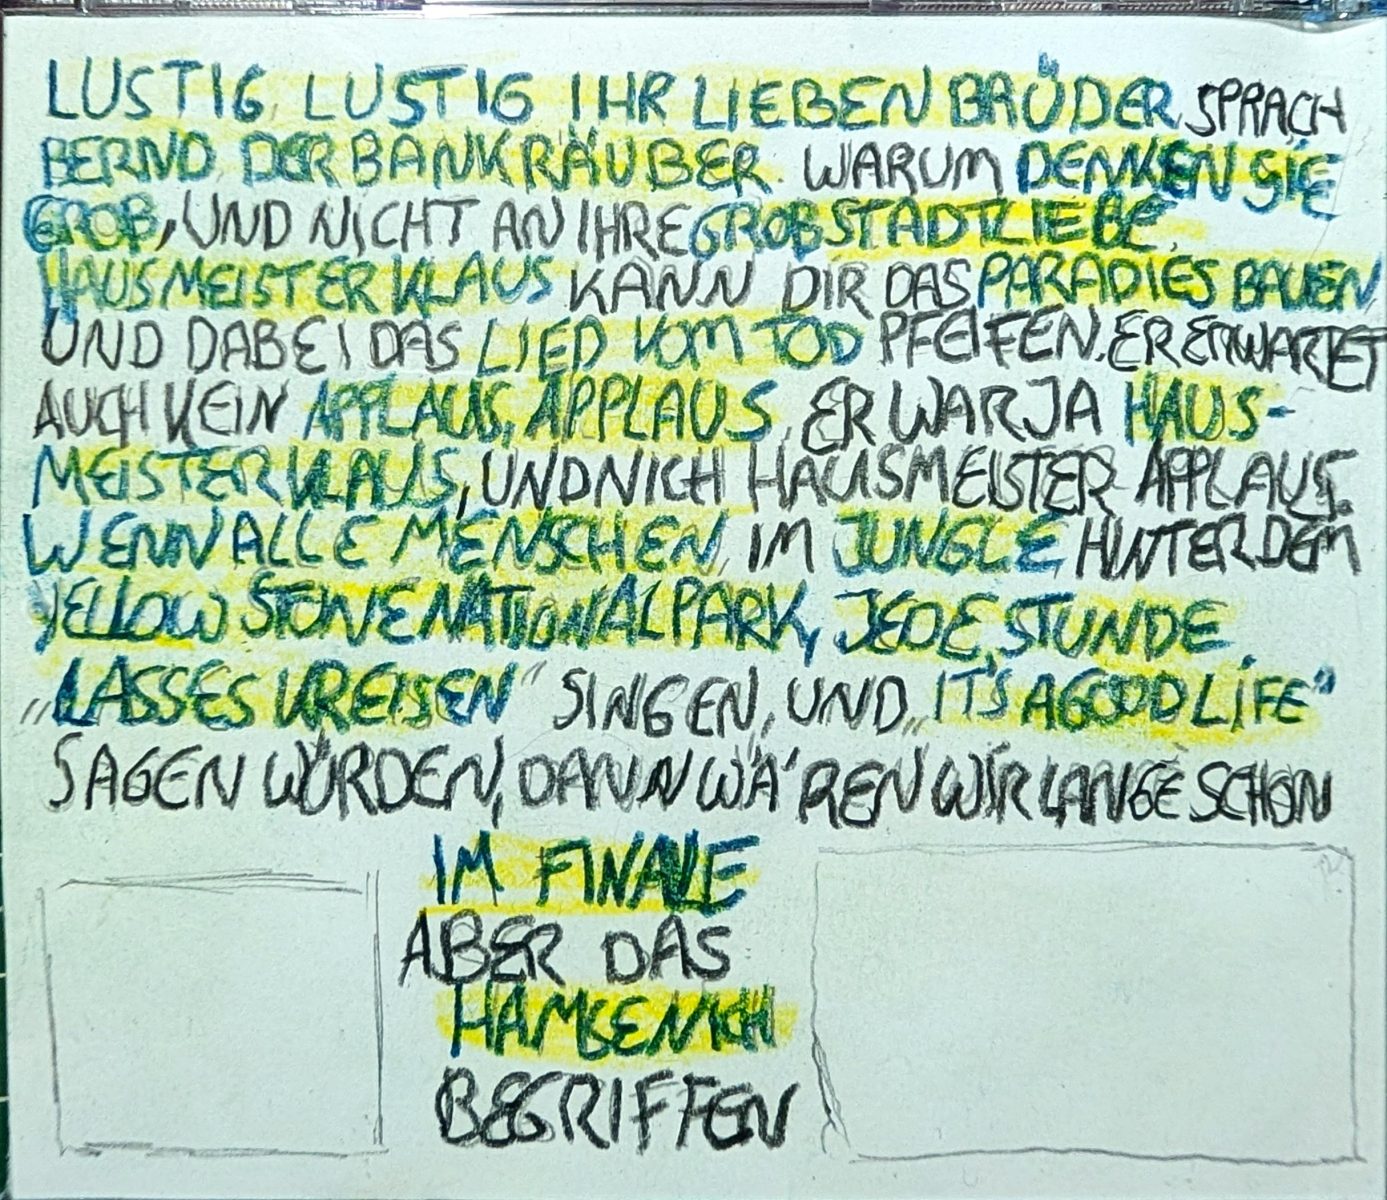 LUSTIG, LUSTIG IHR LIEBEN BRÜDER, SPRACH
BERND DER BANKRÄUBER. WARUM DENKEN SIE
GROB, UND NICHT AN IHRE GROBSTADTLIEBE.
HAUSMEISTER KLAUS KANN DIR DAS PARADIES BAUEN
UND DABEI DAS LIED VOM TOD PFEIFEN. ER ERWARTET
AUCH KEIN APPLAUS, APPLAUS, ER WAR JA HAUS-
MEISTER KLAUS, UND NICH HAUSMEISTER APPLAUS.
WENN ALLE MENSCHEN, IM JUNGLE HINTER DEM
YELLOW STONE NATIONALPARK, JEDE STUNDE
„LASSES KREISEN" SINGEN, UND „IT'S A GOOD LIFE"
SAGEN WÜRDEN, DANN WÄ'REN WIR LANGE SCHON
IM FINALE
ABER DAS
HAMSE NICH
BEGRIFFEN